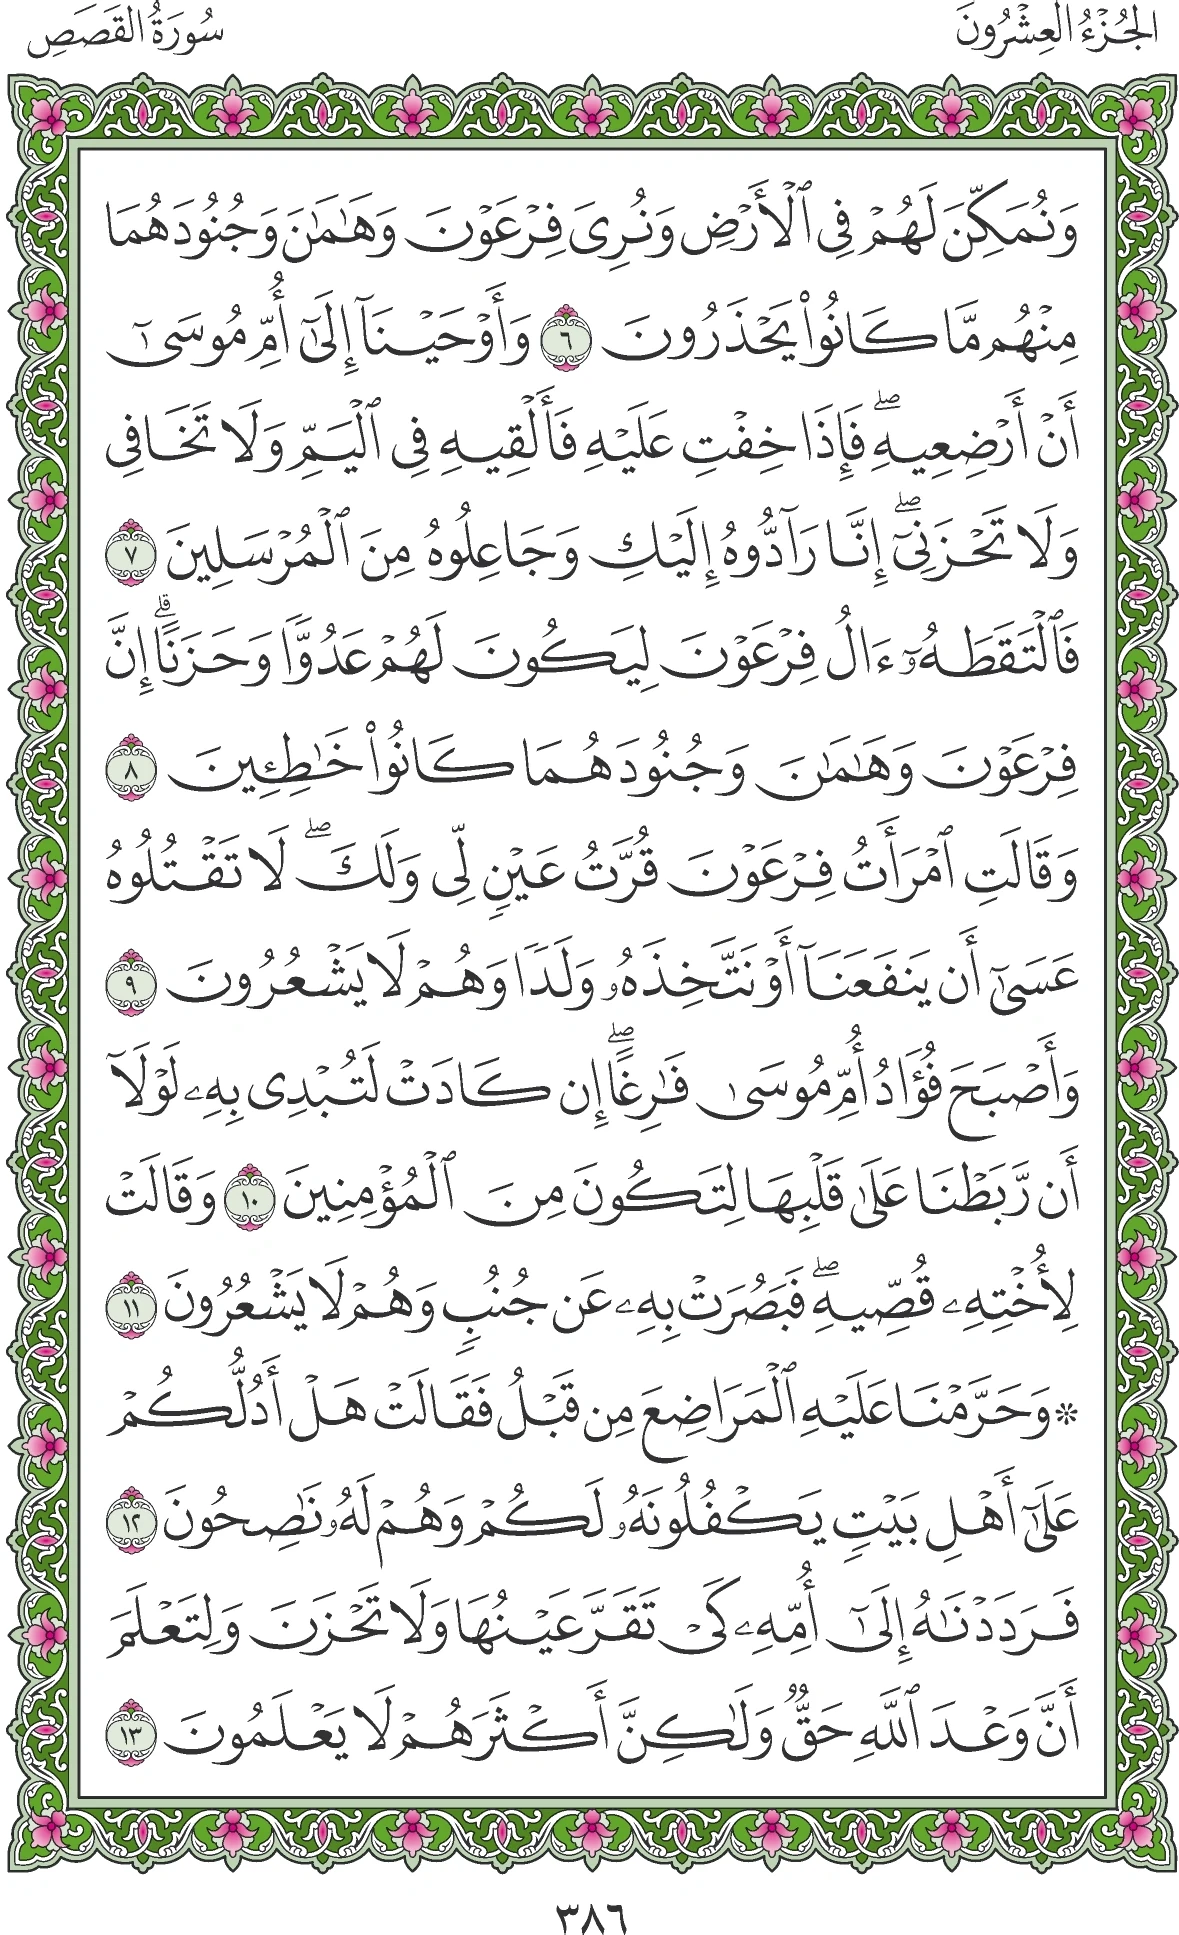 الجُزْءُ العِشْرُونَ
سُورَةُ القَصَصِ
وَنُمَكِّنَ لَهُمْ فِي ٱلْأَرْضِ وَنُرِىَ فِرْعَوْنَ وَهَـٰمَـٰنَ وَجُنُودَهُمَا
مِنْهُم مَّا كَانُوا۟ يَحْذَرُونَ ٦ وَأَوْحَيْنَآ إِلَىٰٓ أُمِّ مُوسَىٰٓ
أَنْ أَرْضِعِيهِ ۖ فَإِذَا خِفْتِ عَلَيْهِ فَأَلْقِيهِ فِى ٱلْيَمِّ وَلَا تَخَافِى
وَلَا تَحْزَنِىٓ ۖ إِنَّا رَآدُّوهُ إِلَيْكِ وَجَاعِلُوهُ مِنَ ٱلْمُرْسَلِينَ ٧
فَٱلْتَقَطَهُۥٓ ءَالُ فِرْعَوْنَ لِيَكُونَ لَهُمْ عَدُوًّا وَحَزَنًا ۗ إِنَّ
فِرْعَوْنَ وَهَـٰمَـٰنَ وَجُنُودَهُمَا كَانُوا۟ خَـٰطِـِٔينَ ٨
وَقَالَتِ ٱمْرَأَتُ فِرْعَوْنَ قُرَّتُ عَيْنٍ لِّى وَلَكَ ۖ لَا تَقْتُلُوهُ
عَسَىٰٓ أَن يَنفَعَنَآ أَوْ نَتَّخِذَهُۥ وَلَدًا وَهُمْ لَا يَشْعُرُونَ ٩
وَأَصْبَحَ فُؤَادُ أُمِّ مُوسَىٰ فَـٰرِغًا ۖ إِن كَادَتْ لَتُبْدِى بِهِۦ لَوْلَآ
أَن رَّبَطْنَا عَلَىٰ قَلْبِهَا لِتَكُونَ مِنَ ٱلْمُؤْمِنِينَ ١٠ وَقَالَتْ
لِأُخْتِهِۦ قُصِّيهِ ۖ فَبَصُرَتْ بِهِۦ عَن جُنُبٍ وَهُمْ لَا يَشْعُرُونَ ١١
۞ وَحَرَّمْنَا عَلَيْهِ ٱلْمَرَاضِعَ مِن قَبْلُ فَقَالَتْ هَلْ أَدُلُّكُمْ
عَلَىٰٓ أَهْلِ بَيْتٍ يَكْفُلُونَهُۥ لَكُمْ وَهُمْ لَهُۥ نَـٰصِحُونَ ١٢
فَرَدَدْنَـٰهُ إِلَىٰٓ أُمِّهِۦ كَىْ تَقَرَّ عَيْنُهَا وَلَا تَحْزَنَ وَلِتَعْلَمَ
أَنَّ وَعْدَ ٱللَّهِ حَقٌّ وَلَـٰكِنَّ أَكْثَرَهُمْ لَا يَعْلَمُونَ ١٣
٣٨٦